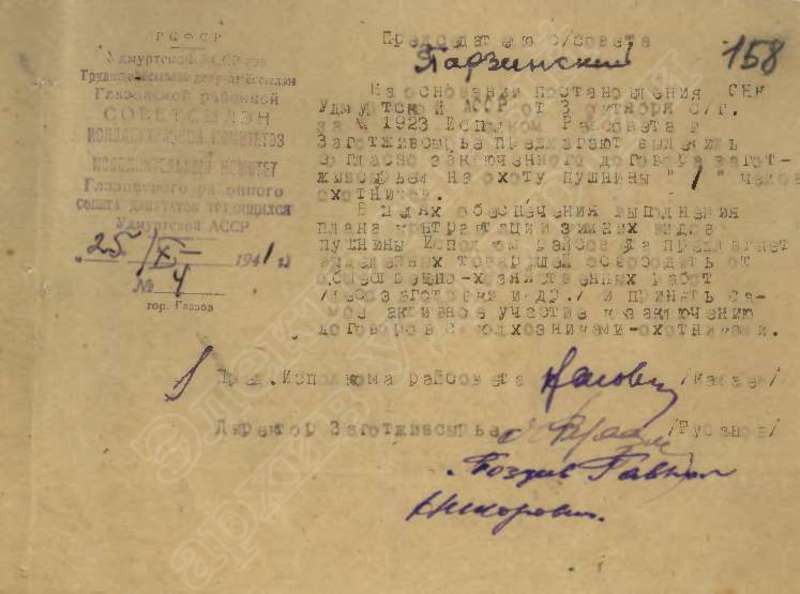 РСФСР
Удмуртской АССР
Глазовской районной
СОВЕТ
ИСПОЛНИТЕЛЬНЫЙ КОМИТЕТ
Глазовского районного
совета депутатов трудящихся
Удмуртской АССР
25/XI- 1941 г.
№ 4
гор. Глазов
158
Председателю с/совета
Парзинский
На основании постановления СНК
Удмуртской АССР от 3 октября с/г.
за № 1923 Исполком Райсовета и
Заготживсырье предлагают выделить
согласно заключенного договора загот-
живсырьем на охоту пушнины "1" чело
охотников.
В целях обеспечения выполнения
плана контрактации зимних видов
пушнины Исполком райсовета предлагает
выделенных товарищей освободить от
общественно-хозяйственных работ
/лесозаготовки и др./ и принять са-
мое активное участие в заключению
договоров с колхозниками-охотниками.
Пред.Исполкома райсовета /Касаев/
Директор Заготживсырье /Русанов/
Поздеев Павел